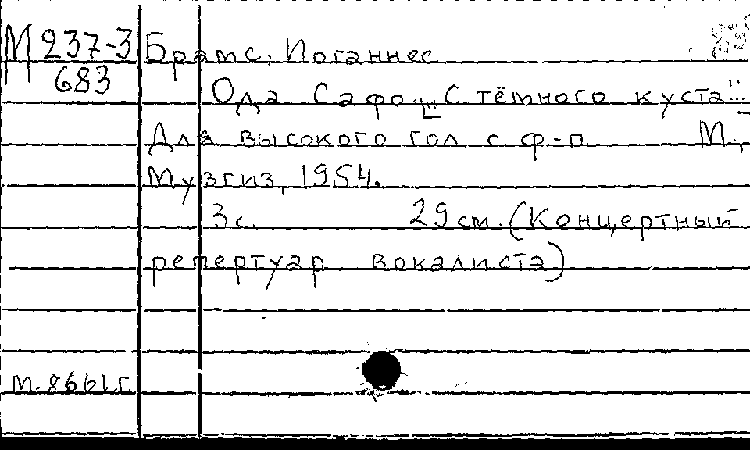 М 237-3 Брамс, Иоганнес
683
Ода Сафо. „С тёмного куста..."
Для высокого гол с ф-п М.,
Музгиз, 1954.
3 с. 29 см. (Концертный
репертуар вокалиста)